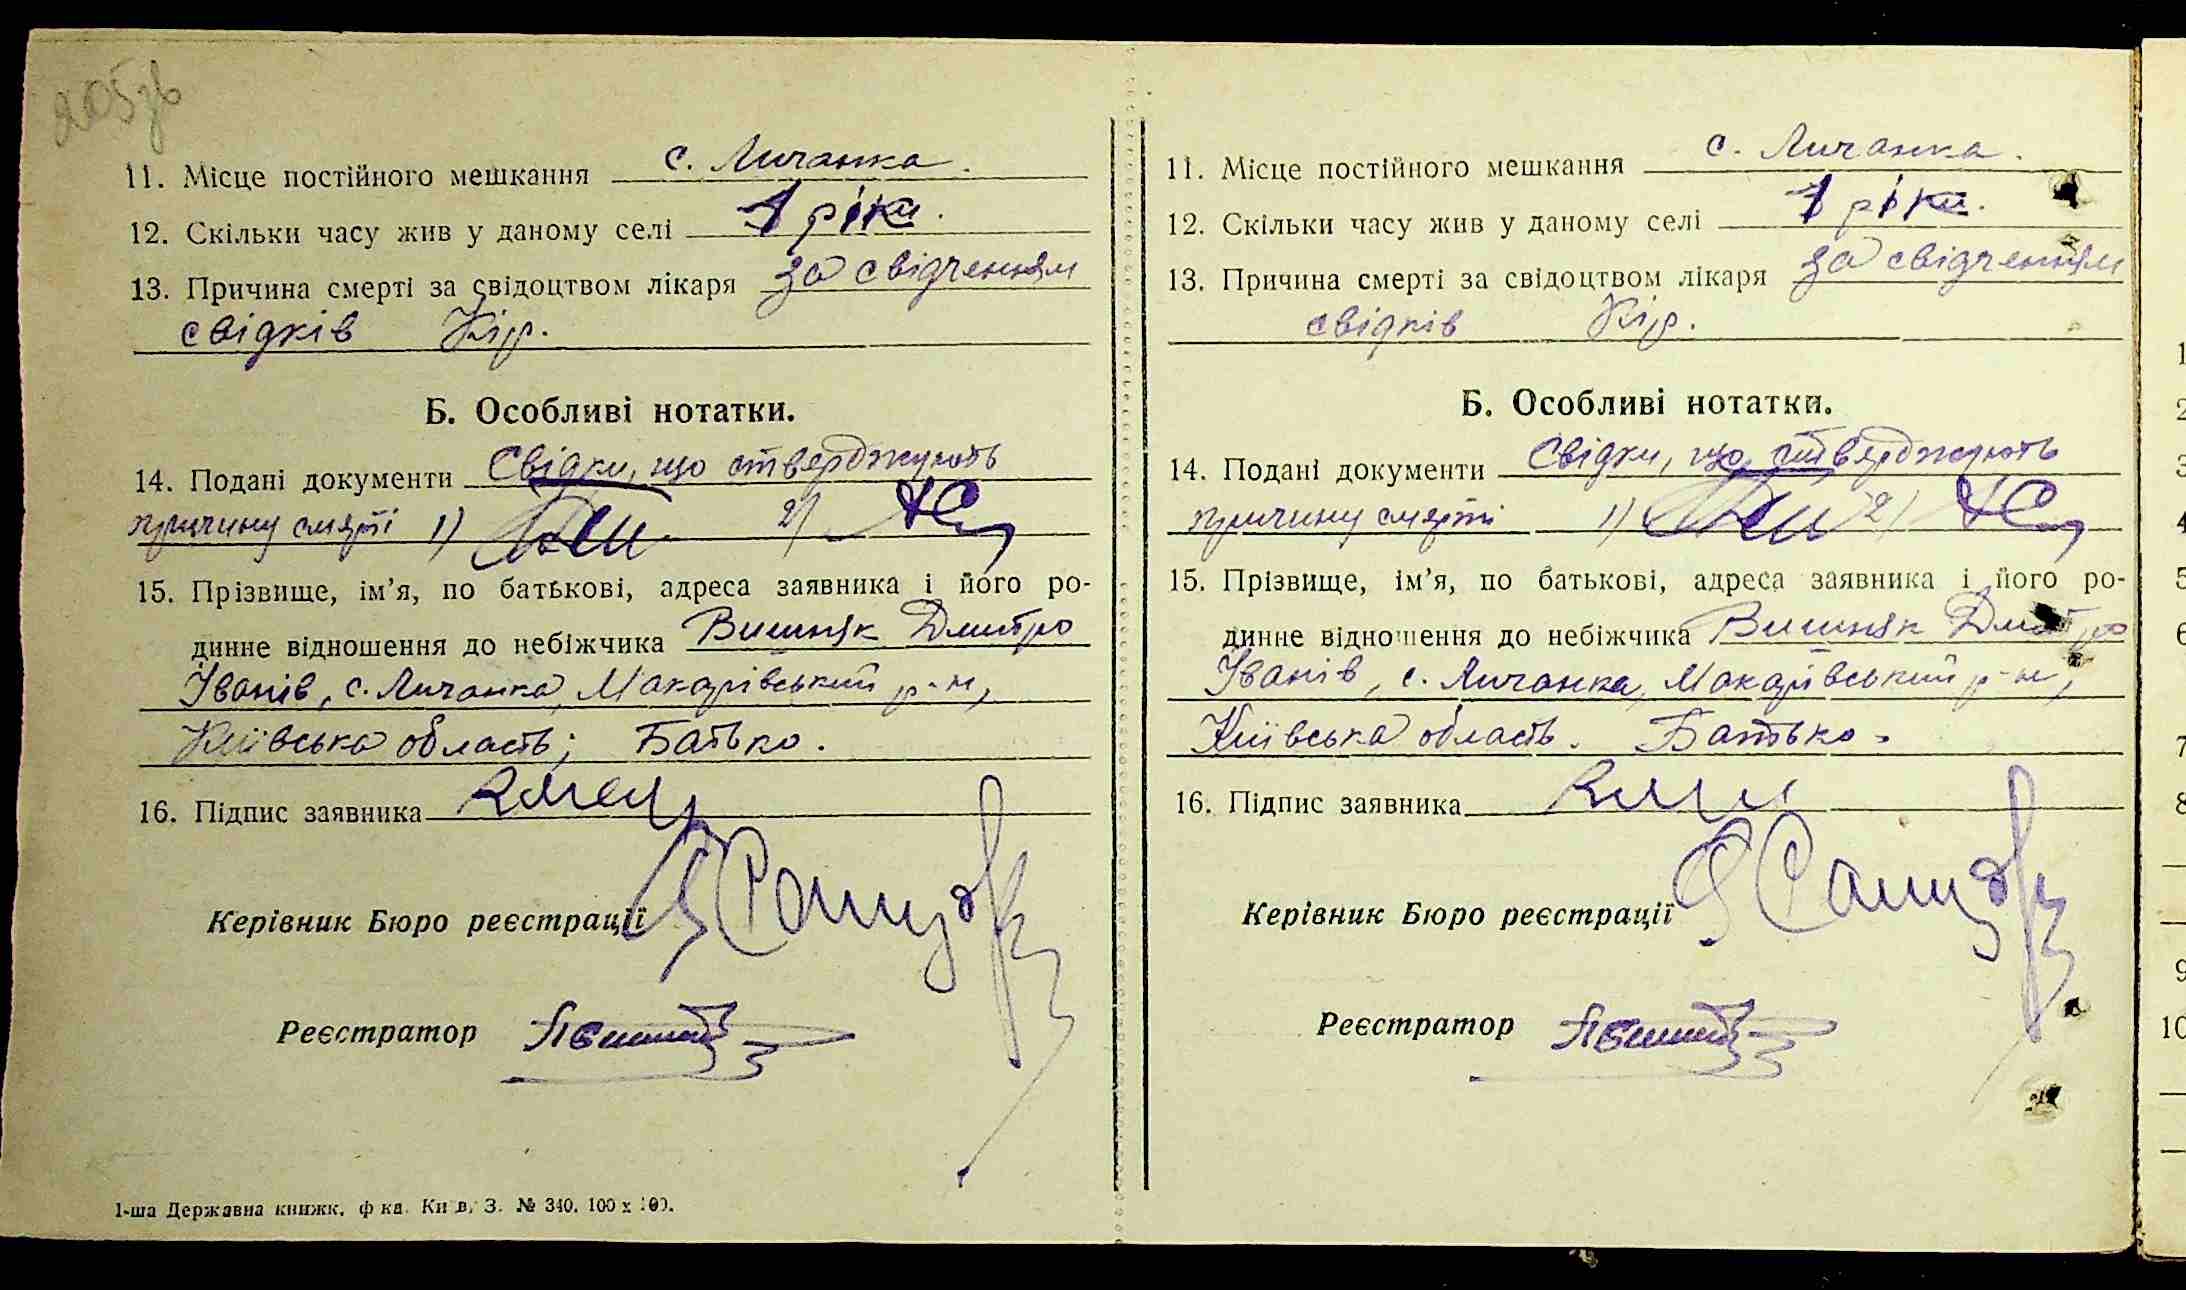 205зв
11. Місце постійного мешкання с. Личанка.
12. Скільки часу жив у даному селі 1 рік.
13. Причина смерті за свідоцтвом лікаря за свідченням
свідків Кір.
Б. Особливі нотатки.
14. Подані документи Свідки, що стверджують
причину смерті 1) 2)
15. Прізвище, ім'я, по батькові, адреса заявника і його ро-
динне відношення до небіжчика Вишняк Дмитро
Іванів, с. Личанка, Макарівський р-н,
Київська область; Батько.
16. Підпис заявника
Керівник Бюро реєстрації
Реєстратор
1-ша Державна книжк. ф-ка. Київ, З. № 340. 100 x 100.
11. Місце постійного мешкання с. Личанка.
12. Скільки часу жив у даному селі 1 рік.
13. Причина смерті за свідоцтвом лікаря за свідченням
свідків Кір.
Б. Особливі нотатки.
14. Подані документи Свідки, що стверджують
причину смерті 1) 2)
15. Прізвище, ім'я, по батькові, адреса заявника і його ро-
динне відношення до небіжчика Вишняк Дмитро
Іванів, с. Личанка, Макарівський р-н,
Київська область. Батько.
16. Підпис заявника
Керівник Бюро реєстрації
Реєстратор